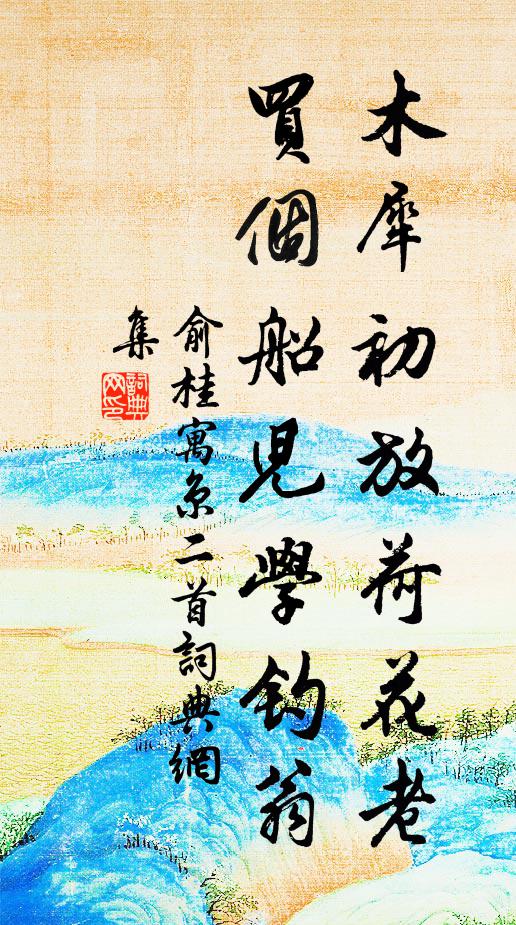 木犀初放荷花老
買個船兒學釣翁
俞桂寓京二首詞典網
集
詞典網印